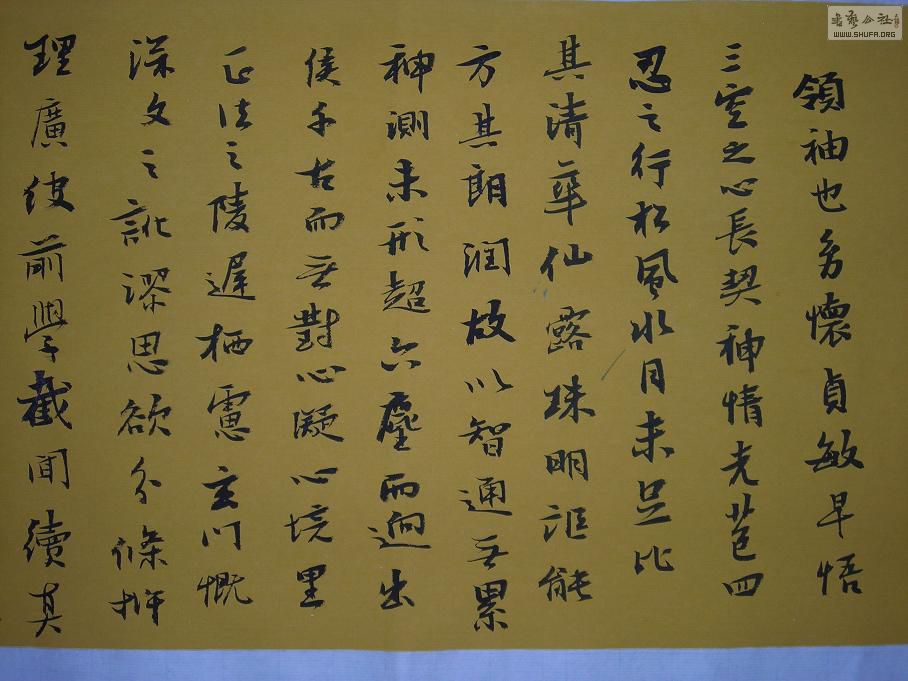 領袖也幼懷貞敏早悟
三空之心長契神情先苞四
忍之行松風水月未足比
其清華仙露珠明詎能
方其朗潤故以智通无累
神測未形超六塵而迥出
侯千古而无對心凝心境里
正法之陵遲栖慮玄門慨
深文之訛謬思欲分條析
理廣彼前學截聞續真
書藝公社
WWW.SHUFA.ORG